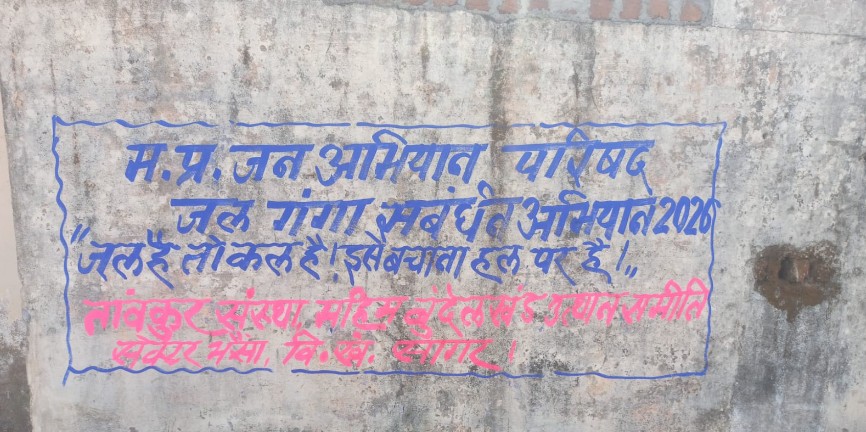 म.प्र. जन अभियान परिषद
जल गंगा सबंर्धन अभियान 2026
"जल है तो कल है। इसे बचाना हल पर है।"
नांवकुर संस्था महिम बुंदेलखंड उत्थान समीति
सेक्टर भैंसा, वि.खं. सागर।